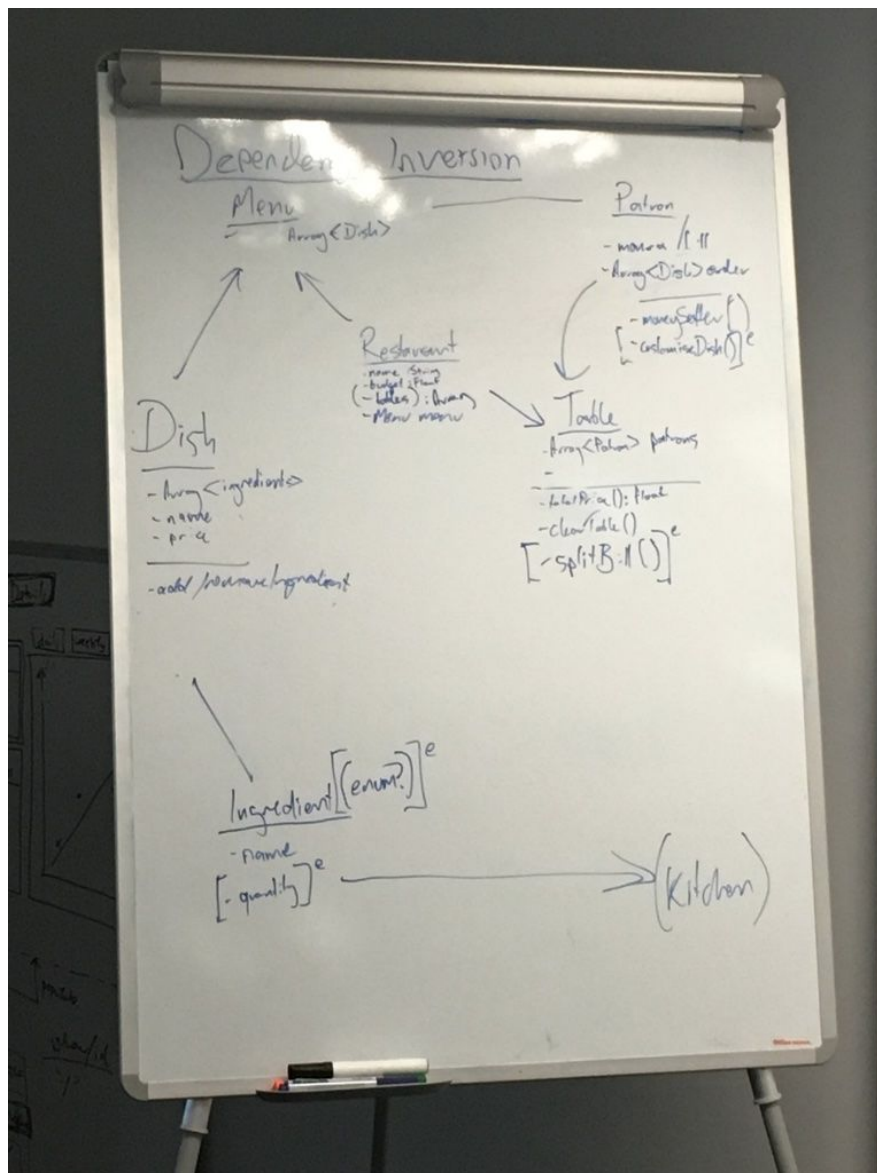 Dependen Inversion
Menu
- Array<Dish>
Patron
-
- Array<Dish> order
- moneySetter()
[- customiseDish()]e
Restaurant
- name: String
- budget: Float
(- tables): Array
- Menu menu
Table
- Array<Patron> patrons
-
- totalPrice(): Float
- clearTable()
[- splitBill()]e
Dish
- Array<ingredients>
- name
- price
- add/remove/ingredient
Ingredient [(enum?)]e
- name
[- quantity]e
(Kitchen)